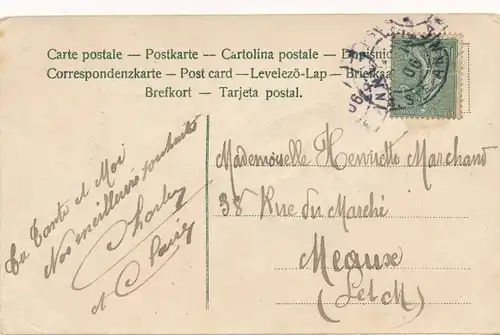 Carte postale — Postkarte — Cartolina postale — Dopisnic
Correspondenzkarte — Post card — Levelezõ-Lap — Briefkaa
Brefkort — Tarjeta postal.
Ta Tante et Moi
Nos meilleures souhaits
Charley
et Claire
Mademoiselle Henriette Marchand
38 Rue du Marché
Meaux
(S et M)
06